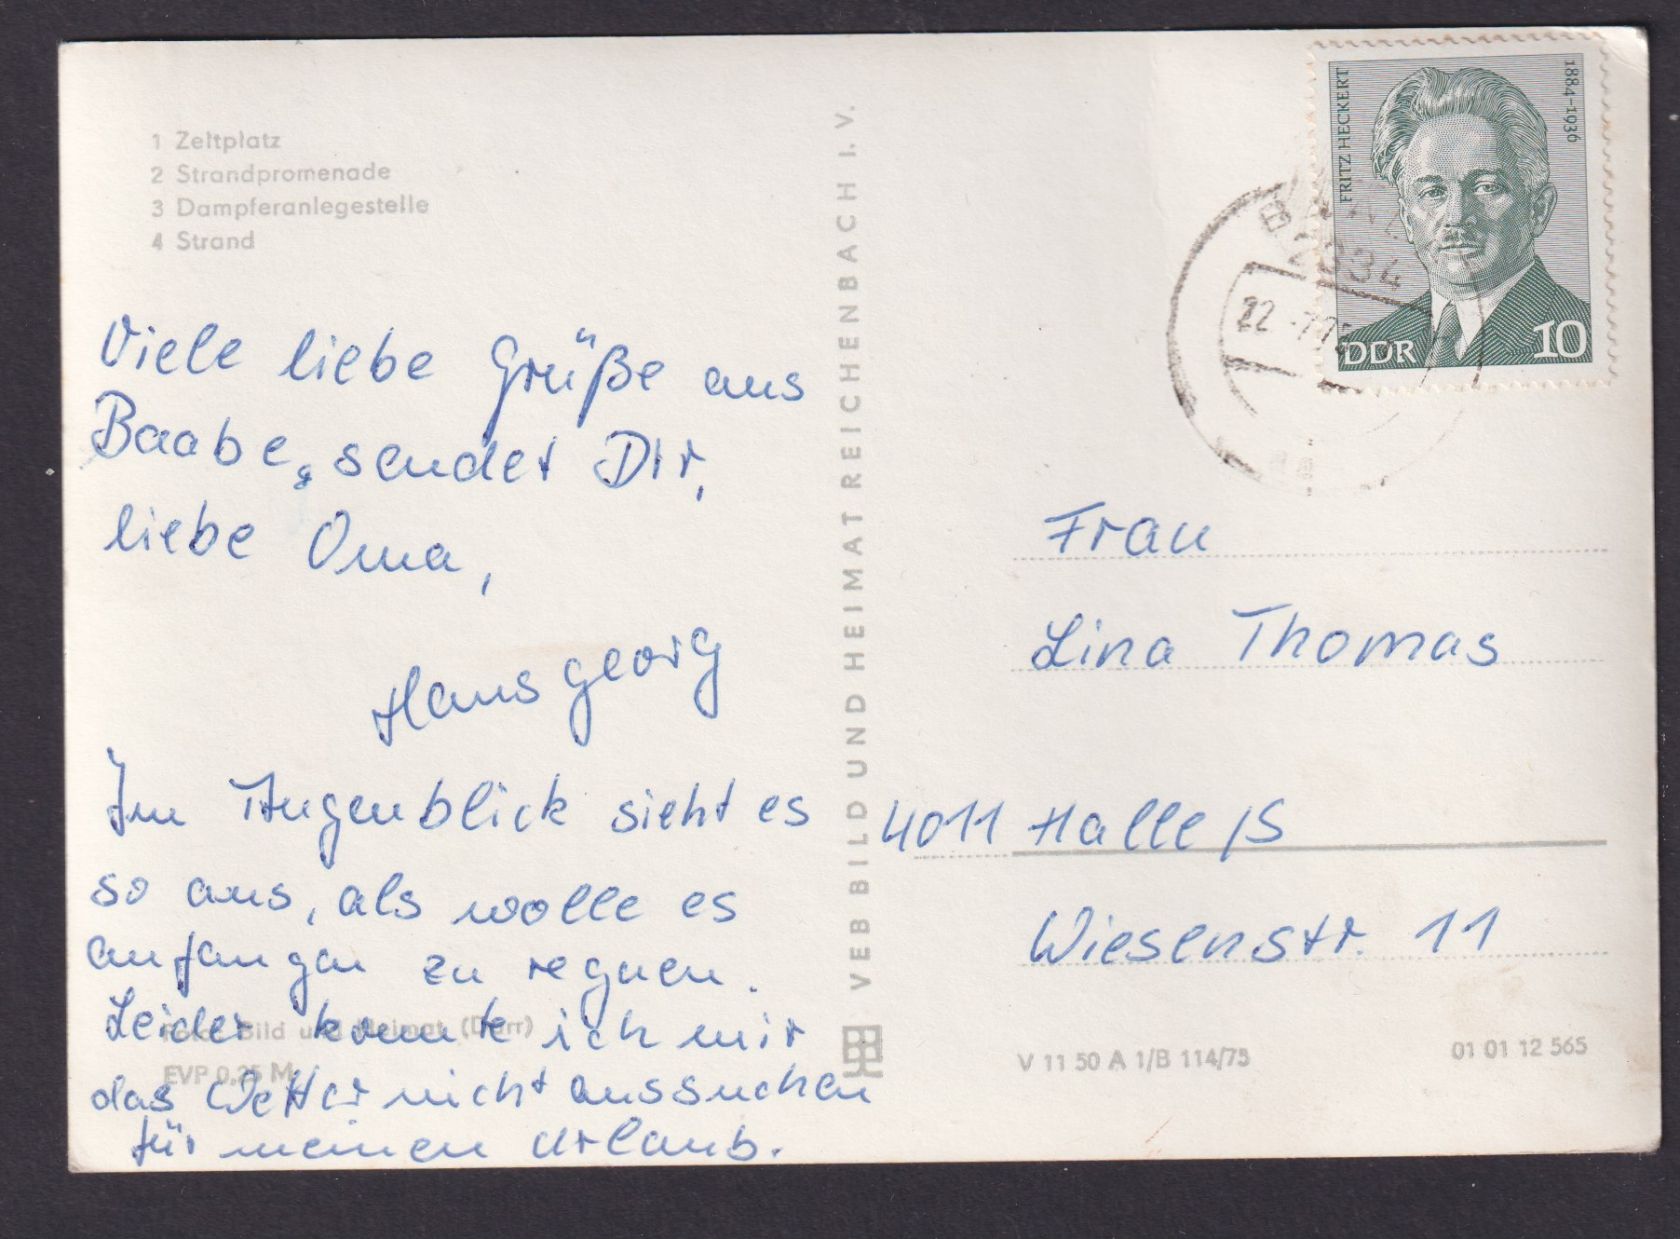 1 Zeltplatz
2 Strandpromenade
3 Dampferanlegestelle
4 Strand
Viele liebe Grüße aus
Baabe, sendet Dir,
liebe Oma,
Hansgeorg
Im Augenblick sieht es
so aus, als wolle es
anfangen zu regnen.
Leider konnte ich mir
das Wetter nicht aussuchen
für meinen Urlaub.
Foto: Bild und Heimat (Darr)
EVP 0,25 M
VEB BILD UND HEIMAT REICHENBACH I. V.
FRITZ HECKERT
1884-1936
DDR
10
2334
22
Frau
Lina Thomas
4011 Halle/S
Wiesenstr. 11
V 11 50 A 1/B 114/75
01 01 12 565